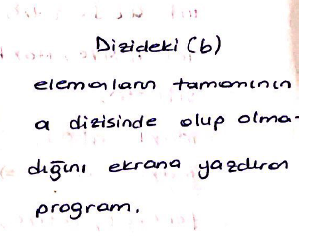 Dizideki (b)
elemanların tamamının
a dizisinde olup olma-
dığını ekrana yazdıran
program.